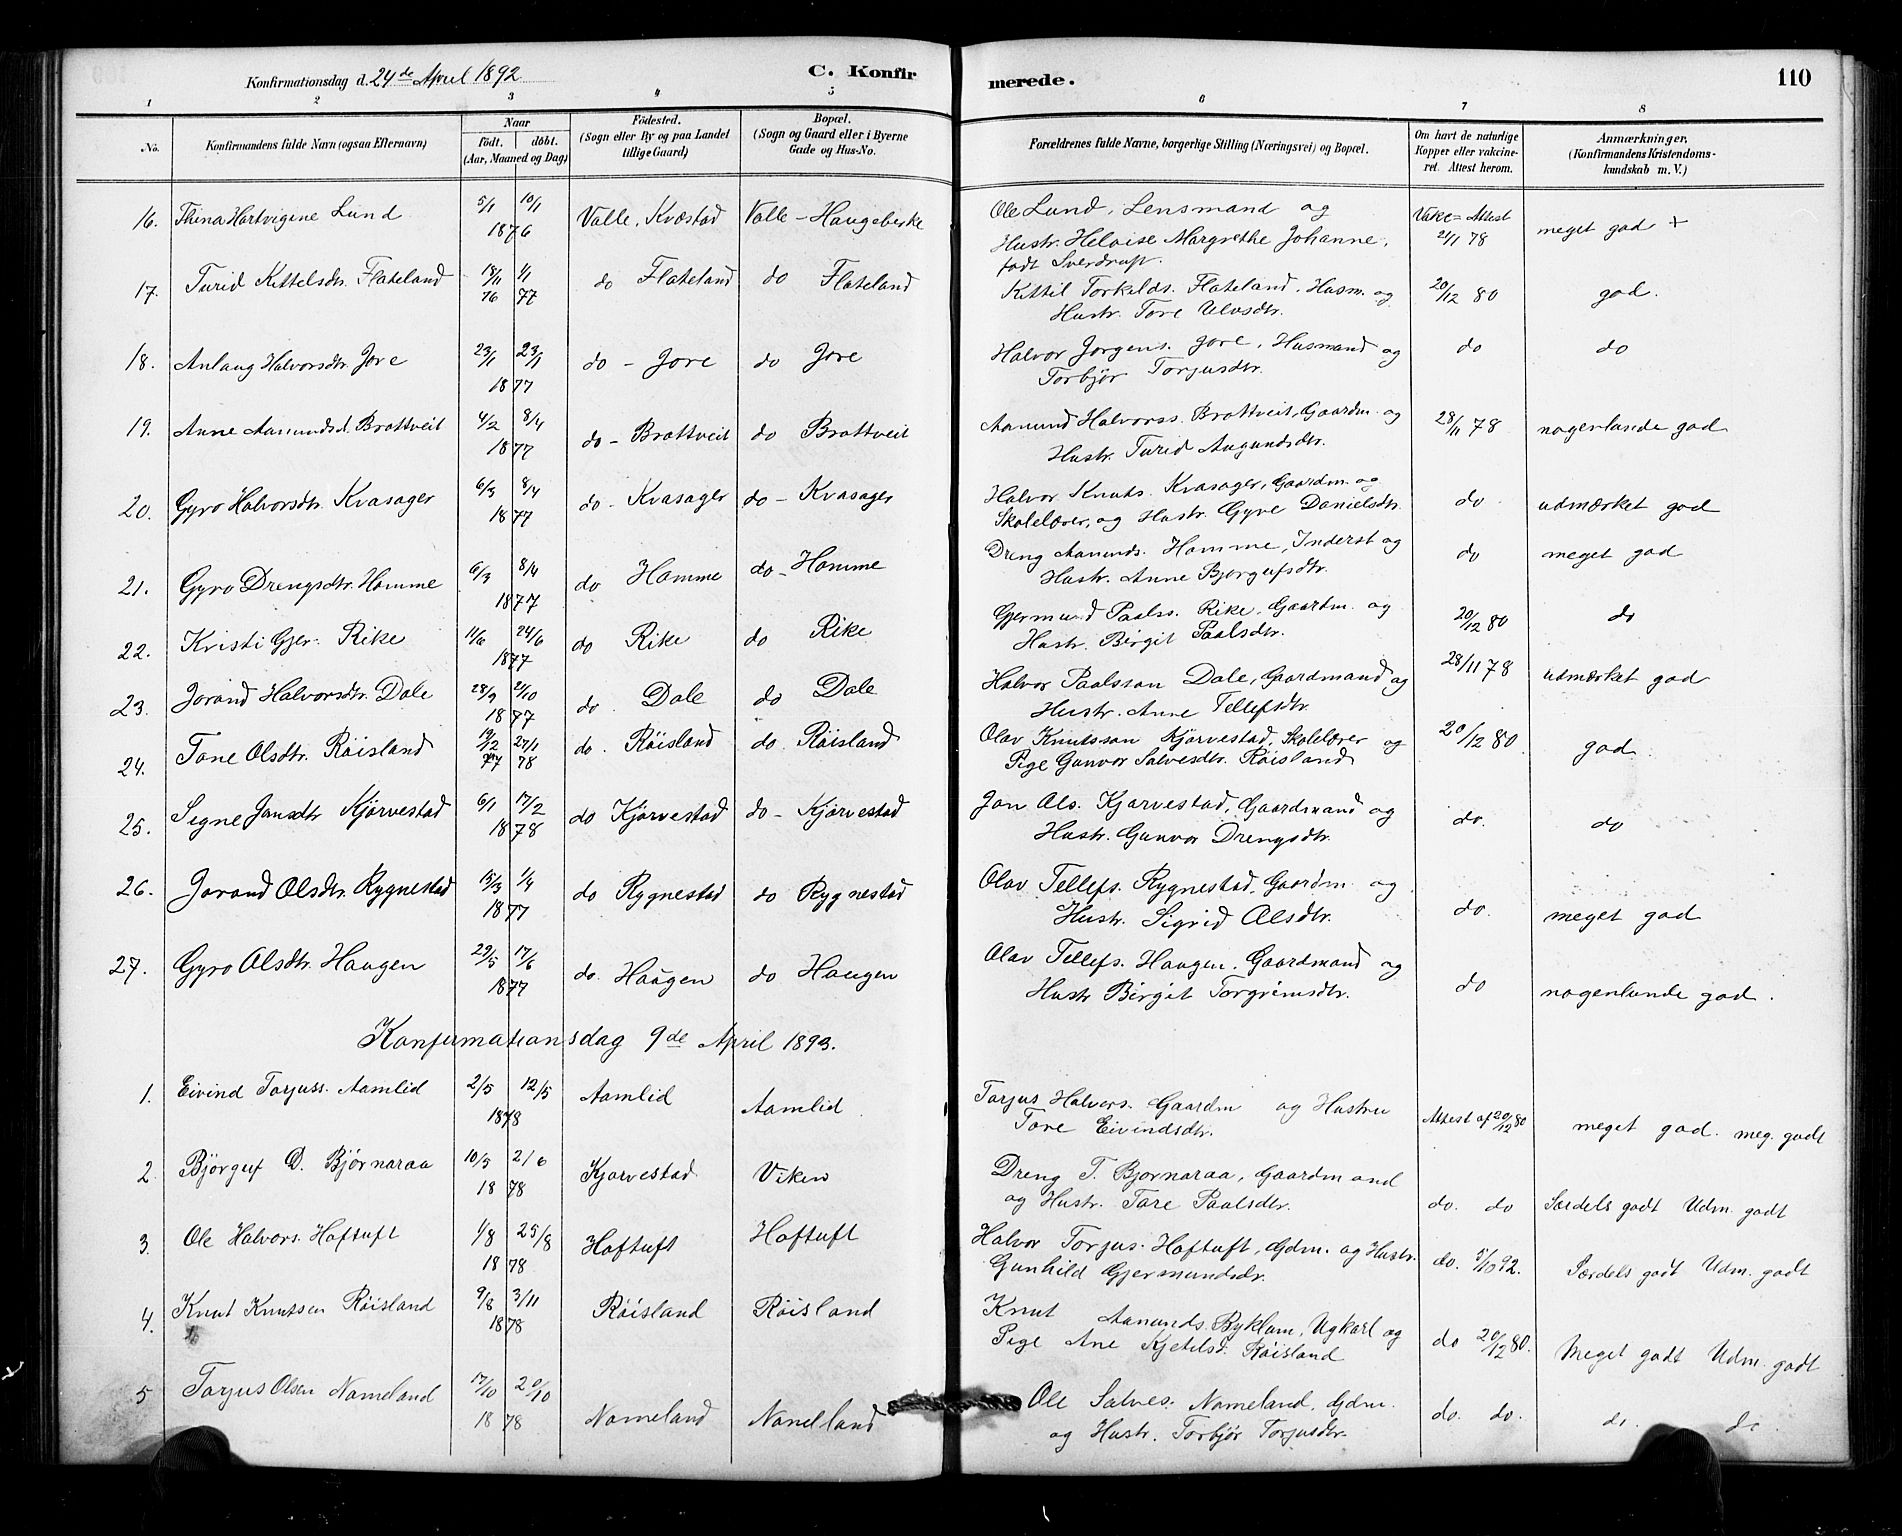 Konfirmationsdag d. 24de April 1892
C. Konfirmerede.
110
1 2 3 4 5 6 7 8
No.
Konfirmandens fulde Navn (ogsaa Efternavn)
Naar
födt. döbt.
(Aar, Maaned og Dag)
Födested.
(Sogn eller By og paa Landet
tillige Gaard)
Bopæl.
(Sogn og Gaard eller i Byerne
Gade og Hus-No.
Forældrenes fulde Navne, borgerlige Stilling (Næringsvei) og Bopæl.
Om havt de naturlige
Kopper eller vakcine-
ret. Attest herom.
Anmærkninger,
(Konfirmandens Kristendoms-
kundskab m. V.)
16. Thina Hartvigine Lund 5/1 10/1 1876 Valle, Kvæstad Valle - Haugebirke
Ole Lund, Lensmand og
Hustr. Heloise Margrethe Johanne,
født Sverdrup.
Vakc= Attest
24/1 78
meget god +
17. Turid Kittelsdtr. Flateland 18/11 76 1/1 77 do Flateland do Flateland
Kittil Torkelds. Flateland. Husm. og
Hustr. Tore Ulvsdtr.
20/12 80 god.
18. Anlaug Halvorsdtr. Jore 23/1 23/1 1877 do - Jore do Jore
Halvor Jorgens. Jore, Husmand og
Torbjør Torjusdtr.
do do
19. Anne Aamundsd. Brottveit 4/2 8/4 1877 do - Brottveit do Brottveit
Aamund Halvorss. Brottveit, Gaardm. og
Hustr. Turid Augundsdtr.
28/11 78 nogenlunde god
20. Gyro Halvorsdtr. Kvasager 6/3 8/4 1877 do - Kvasager do - Kvasager
Halvor Knuts. Kvasager, Gaardm. og
Skolelærer, og Hustr. Gyve Danielsdtr.
do udmærket god
21. Gyro Drengsdtr. Homme 6/3 8/4 1877 do Homme do - Homme
Dreng Aamunds. Homme, Inderst og
Hustr. Anne Bjorgufsdtr.
do meget god
22. Kristi Gjer. Rike 11/6 24/6 1877 do Rike do Rike
Gjermund Paals. Rike, Gaardm. og
Hustr. Birgit Paalsdtr.
20/12 80 do
23. Jorand Halvorsdtr. Dale 28/9 21/10 1877 do. Dale do Dale
Halvor Paalsson Dale, Gaardmand og
Hustr. Anne Tellefsdtr.
28/11 78 udmærket god
24. Tone Olsdtr. Röisland 19/12 77 27/1 78 do. Röisland do. Röisland
Olav Knutsson Kjörvestad, Skolelærer og
Pige Gunvor Salvesdtr. Röisland
20/12 80 god
25. Signe Jonsdtr Kjörvestad 6/1 17/2 1878 do Kjörvestad do - Kjörvestad
Jon Ols. Kjorvestad, Gaardmand og
Hustr. Gunvor Drengsdtr.
do. do
26. Jorand Olsdtr. Rygnestad 15/3 1/4 1877 do Rygnestad do Rygnestad
Olav Tellefs. Rygnestad, Gaardm. og
Hustr. Sigrid Olsdtr.
do. meget god
27. Gyro Olsdtr. Haugen 29/5 17/6 1877 do. Haugen do Haugen
Olav Tellefs. Haugen. Gaardmand og
Hustr Birgit Torgrimsdtr.
do nogenlunde god.
Konfirmationsdag 9de April 1893.
1. Eivind Torjuss. Aamlid 2/5 12/5 1878 Aamlid Aamlid
Torjus Halvors. Gaardm og Hustru
Tore Eivindsdtr.
Attest af 20/12 80 meget god. meg. godt
2. Bjørguf D. Bjørnaraa 10/5 2/6 1878 Kjorvestad Viken
Dreng T. Bjornaraa, Gaardmand
og Hustr. Tore Paalsdtr.
do. do Særdels godt Udm. godt
3. Ole Halvors. Hoftuft 1/8 25/8 1878 Hoftuft Hoftuft
Halvor Torjus. Hoftuft, Gdm. og Hustr.
Gunhild Gjermundsdr.
do. 5/10 92. Særdels godt Udm. godt
4. Knut Knutsen Röisland 9/8 3/11 1878 Röisland Röisland
Knut Aamunds. Byklum, Ugkarl og
Pige Ane Kjetelsd. Röisland
do 20/12 80. Meget godt Udm. godt
5 Torjus Olsen Nomeland 17/10 20/10 1878 Nomeland Nomelland
Ole Salves. Nomeland, Gdm.
og Hustr. Torbjör Torjusdtr.
do. do. do. do.